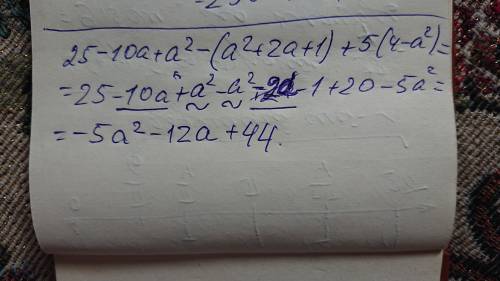 25-10a+a²-(a²+2a+1)+5(4-a²)=
=25-10a+a²-a²-2a-1+20-5a²=
=-5a²-12a+44.